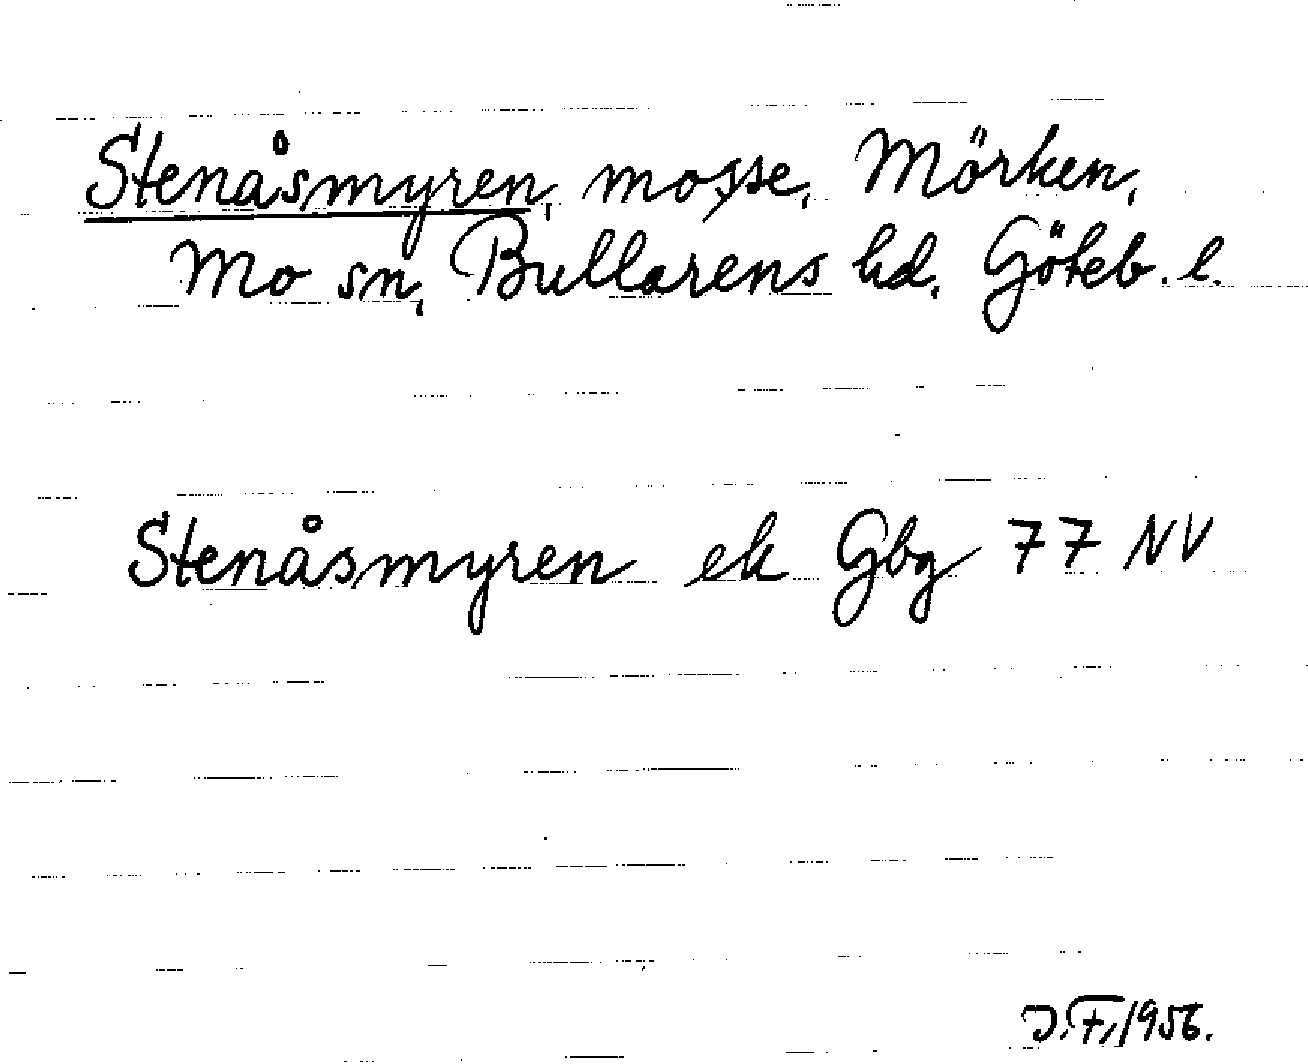 Stenåsmyren, mosse, Mörken,
Mo sn, Bullarens hd, Göteb. l.
Stenåsmyren ek Gbg 77 NV
J.F. 1956.